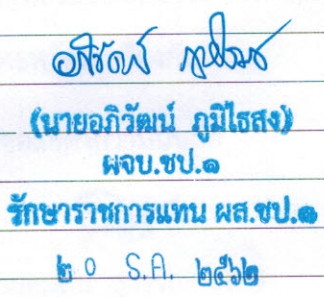 อภิวัฒน์ ภูมิไธสง
(นายอภิวัฒน์ ภูมิไธสง)
ผจบ.ชป.๑
รักษาราชการแทน ผส.ชป.๑
๒๐ ธ.ค. ๒๕๖๒